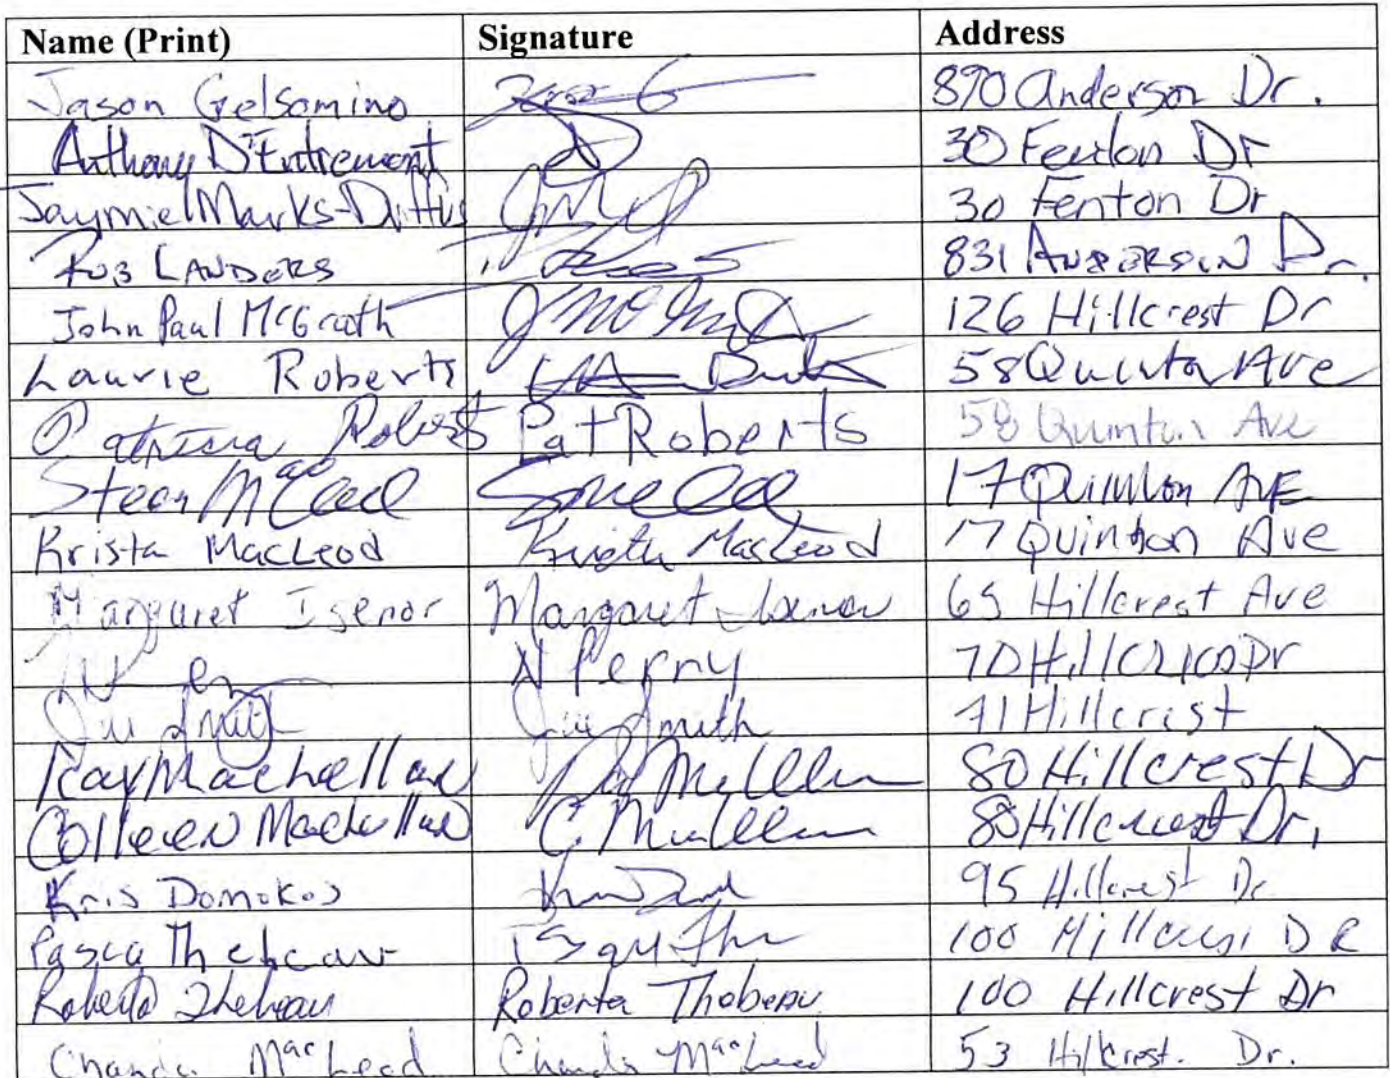 Name (Print) Signature Address
Jason Gelsomino 890 Anderson Dr.
Anthony D'Entremont 30 Fenton Dr
Jaymie Marks-Duffus 30 Fenton Dr
Rob LANDERS 831 ANDERSON Dr.
John Paul McGrath 126 Hillcrest Dr
Laurie Roberts 58 Quinton Ave
Patricia Roberts Pat Roberts 58 Quinton Ave
MacLeod 17 Quinton AVE
Krista MacLeod Krista MacLeod 17 Quinton Ave
Margaret Isenor Margaret Isenor 65 Hillcrest Ave
N Perry 70 Dr
Smith Smith 71 Hillcrest
Ray MacLellan 80 Hillcrest Dr
Colleen MacLellan 80 Hillcrest Dr.
Kris Domokos 95 Hillcrest Dr
100 Hillcrest DR
Roberta Thebeau Roberta Thebeau 100 Hillcrest Dr
MacLeod MacLeod 53 Hillcrest. Dr.